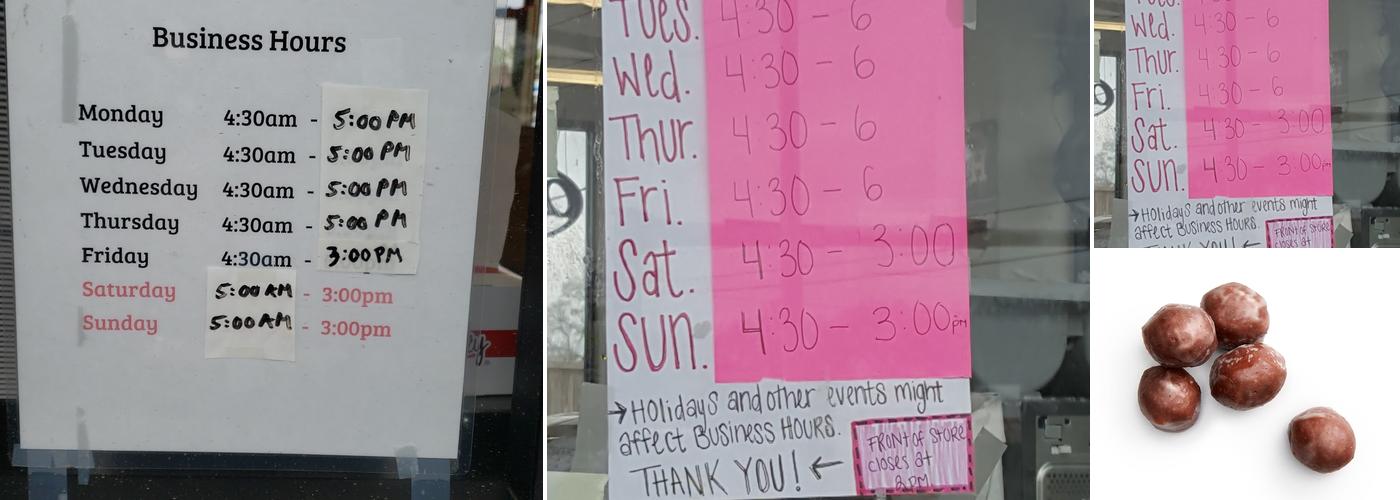 Business Hours
Monday 4:30am - 5:00 PM
Tuesday 4:30am - 5:00 PM
Wednesday 4:30am - 5:00 PM
Thursday 4:30am - 5:00 PM
Friday 4:30am - 3:00 PM
Saturday 5:00 AM - 3:00pm
Sunday 5:00 AM - 3:00pm
Tues. 4:30 - 6
Wed. 4:30 - 6
Thur. 4:30 - 6
Fri. 4:30 - 6
Sat. 4:30 - 3:00
Sun. 4:30 - 3:00pm
→ Holidays and other events might
affect Business Hours.
THANK YOU! ←
FRONT OF STORE
closes at
Wed. 4:30 - 6
Thur. 4:30 - 6
Fri. 4:30 - 6
Sat. 4:30 - 3:00
Sun. 4:30 - 3:00pm
→ Holidays and other events might
affect Business Hours.
FRONT OF STORE
closes at